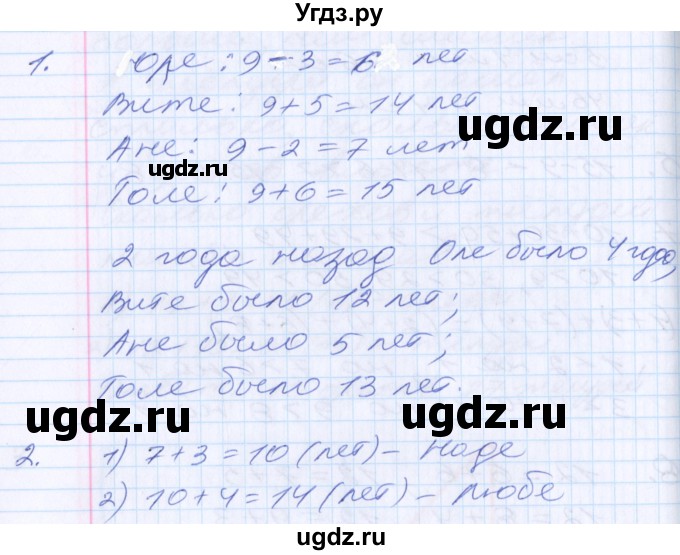 Угдз.ру
1. Юре: 9 - 3 = 6 лет
Вите: 9 + 5 = 14 лет
ugdz.ru
Ане: 9 - 2 = 7 лет
ugdz.ru
Толе: 9 + 6 = 15 лет
2 года назад Оле было 4 года,
Вите было 12 лет;
Ане было 5 лет;
Толе было 13 лет.
ugdz.ru
ugdz.ru
2. 1) 7 + 3 = 10 (лет) - Наде
2) 10 + 4 = 14 (лет) - Любе
ugdz.ru